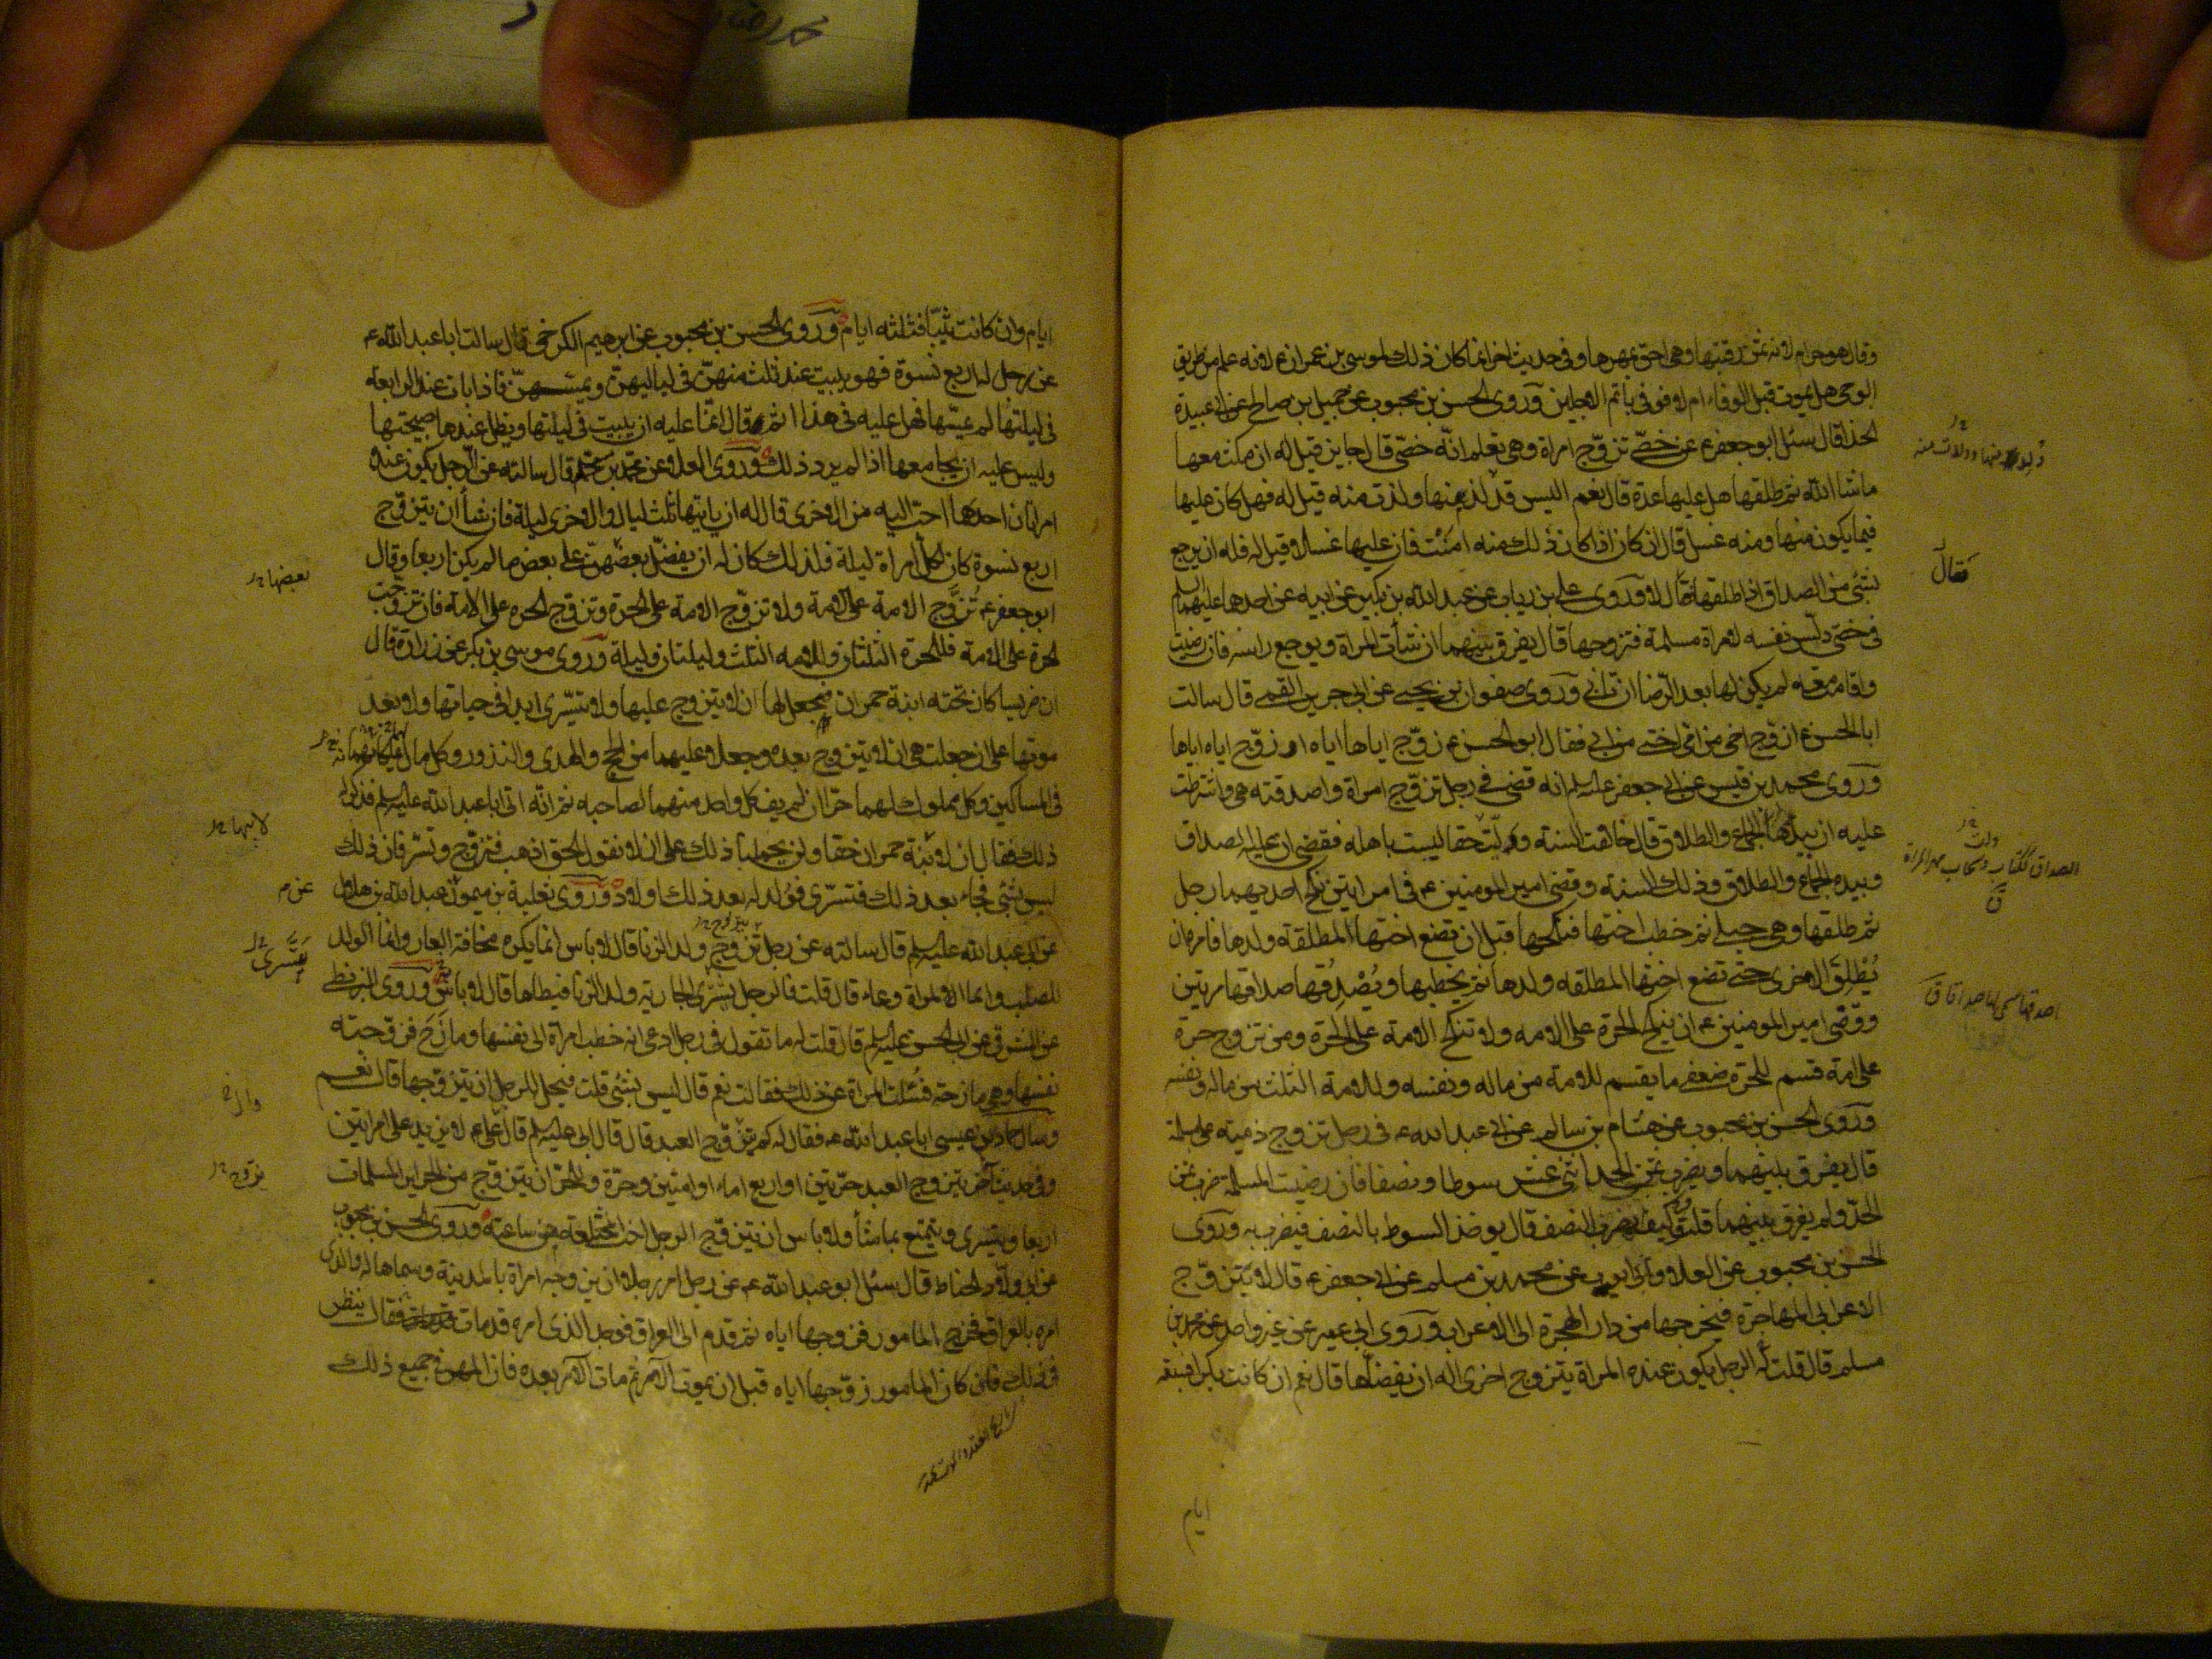 وقال هو حرام لانه ثمن رقبتها وهي احق بمهرها وفي حديث اخر انما كان ذلك لموسى بن عمران ع لانه علم من طريق
الوحي هل يموت قبل الوفاء ام لا فوفى باتم الاجلين وروى الحسن بن محبوب عن جميل بن صالح عن ابي عبيدة
الحذا قال سئل ابو جعفر ع عن خصي تزوج امراة وهي تعلم انه خصي قال جايز قيل له انه مكث معها
ماشا الله ثم طلقها هل عليها عدة قال نعم اليس قد لذ منها ولذت منه قيل له فهل كان عليها
فيما يكون منها ومنه غسل قال ان كان اذا كان ذلك منه امنت فان عليها غسلا وقيل له فله ان يرجع
بشئ من الصداق اذا طلقها فقال لا وروى علي بن رياب عن عبد الله بن بكير عن ابيه عن احدهما عليهما السلم
في خصي دلس نفسه لامراة مسلمة فتزوجها قال يفرق بينهما ان شات المراة ويوجع راسه فان رضيت
واقامت معه لم يكن لها بعد الرضا ان تاباه وروى صفوان بن يحيى عن ابي جرير القمي قال سالت
ابا الحسن ع ازوج اخي من امي اختي من ابي فقال ابو الحسن ع زوج اياها اياه او زوج اياه اياها
وروى محمد بن قيس عن ابي جعفر عليه السلم انه قضى في رجل تزوج امراة واصدقته هي واشترطت
عليه ان بيدها الجماع والطلاق قال خالفت السنة وليت حقا ليست باهله فقضى ان عليه الصداق
وبيده الجماع والطلاق وذلك السنة وقضى امير المومنين ع في امراتين نكح احديهما رجل
ثم طلقها وهي حبلى ثم خطب اختها فنكحها قبل ان تضع اختها المطلقة ولدها فامره ان
يطلق الاخرى حتى تضع اختها المطلقه ولدها ثم يخطبها ويصدقها صداقها مرتين
وقضى امير المومنين ع ان ينكح الحرة على الامه ولا تنكح الامة على الحرة ومن تزوج حرة
على امة قسم للحرة ضعفي ما يقسم للامة من ماله ونفسه وللامة الثلث من ماله ونفسه
وروى الحسن بن محبوب عن هشام بن سالم عن ابي عبد الله ع في رجل تزوج ذمية على مسلمة
قال يفرق بينهما ويضرب ثمن الحد اثنى عشر سوطا ونصفا فان رضيت المسلمة ضرب ثمن
الحد ولم يفرق بينهما قلت كيف يضرب النصف قال يوخذ السوط بالنصف فيضرب به وروى
الحسن بن محبوب عن العلا وابي ايوب عن محمد بن مسلم عن ابي جعفر ع قال لا يتزوج
الاعرابي المهاجرة فيخرجها من دار الهجرة الى الاعراب وروى ابن ابي عمير عن غير واحد عن محمد بن
مسلم قال قلت له الرجل يكون عنده المراة يتزوج اخرى اله ان يفضلها قال نعم ان كانت بكرا فسبعة
فقال
ايام
ايام وان كانت ثيبا فثلثه ايام وروى الحسن بن محبوب عن ابرهيم الكرخي قال سالت ابا عبد الله ع
عن رجل له اربع نسوة فهو يبيت عند ثلث منهن في لياليهن ويمسهن فاذا بات عند الرابعة
في ليلتها لم يمسها فهل عليه في هذا اثم قال انما عليه ان يبيت في ليلتها ويظل عندها صبيحتها
وليس عليه ان يجامعها اذا لم يرد ذلك وروى العلا عن محمد بن مسلم قال سالته عن الرجل يكون عنده
امراتان احدهما احب اليه من الاخرى قال له ان ياتيها ثلث ليال والاخرى ليلة فان شا ان يتزوج
اربع نسوة كان لكل امراة ليلة فلذلك كان له ان يفضل بعضهن على بعض ما لم يكن اربعا وقال
ابو جعفر ع تزوج الامة على الامة ولا تزوج الامة على الحرة وتزوج الحرة على الامة فان تزوجت
الحرة على الامة فللحرة الثلثان وللامه الثلث وليلتان وليلة وروى موسى بن بكر عن زرارة قال
ان ضريسا كان تحته ابنة حمران فجعل لها ان لا يتزوج عليها ولا يتسرى ابدا في حياتها ولا بعد
موتها على ان جعلت هي ان لا يتزوج بعده وجعلا عليهما من الحج والهدى والنذور وكل مال يملكانه
في المساكين وكل مملوك لهما حرا ان لم يف كل واحد منهما لصاحبه ثم انه اتى ابا عبد الله عليه السلم فذكر له
ذلك فقال ان لابنة حمران حقا ولن يحملنا ذلك على ان لا نقول الحق اذهب فتزوج وتسر فان ذلك
ليس بشئ فجاء بعد ذلك فتسرى فولد له بعد ذلك اولاد وروى ثعلبة بن ميمون عبد الله بن هلال
عن ابي عبد الله عليه السلم قال سالته عن رجل تزوج ولد الزنا قال لا باس انما يكره مخافة العار وانما الولد
للصلب وانما المراة وعاء قال قلت فالرجل يشترى الجارية ولد الزنا فيطاها قال لا باس وروى البزنطى
عن المشرقي عن ابي الحسن عليه السلم قال قلت له ما تقول في رجل ادعى انه خطب امراة الى نفسها ومازح فزوجته
نفسها وهي مازحة فسئلت المراة عن ذلك فقالت نعم قال ليس بشئ قلت فيحل للرجل ان يتزوجها قال نعم
وسال حماد بن عيسى ابا عبد الله ع فقال له كم يتزوج العبد قال قال ابي عليه السلم قال علي ع لا يزيد على امراتين
وفي حديث اخر يتزوج العبد حرتين او اربع اماء او امتين وحرة والحر ان يتزوج من الحراير المسلمات
اربعا ويتسرى ويتمتع بما شا ولا باس ان يتزوج الرجل اخت المختلعة من ساعته وروى الحسن بن محبوب
عن ابي ولاد الحناط قال سئل ابو عبد الله ع عن رجل امر رجلا ان يزوجه امراة بالمدينة وسماها له والذى
امره بالعراق فخرج المامور فزوجها اياه ثم قدم الى العراق فوجد الذى امره قد مات فقال ينظر
في ذلك فان كان المامور زوجها اياه قبل ان يموت الآمر ثم مات الآمر بعده فان المهر في جميع ذلك
بعضها
لابنها
عن م
يتسرى
تزوج